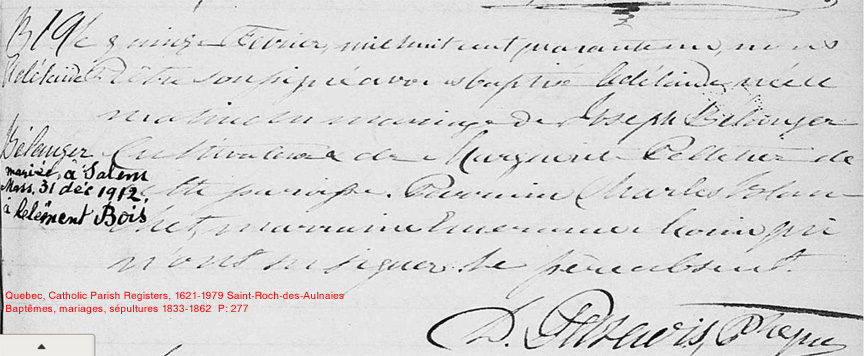 B 19
Adélaïde
Bélanger
mariée, à Salem
Mass. 31 déc 1912,
à Clément Bois
Le quinze Février, mil huit cent quarante un, nous
Prêtre soussigné avons baptisé Adélaïde née le
matin du mariage de Joseph Bélanger
Cultivateur & de Marguerite Pelletier de
cette paroisse. Parrain Charles
marraine Emerance qui
n'ont su signer. Le père absent.
D. Ptre
Quebec, Catholic Parish Registers, 1621-1979 Saint-Roch-des-Aulnaies
Baptêmes, mariages, sépultures 1833-1862 P: 277